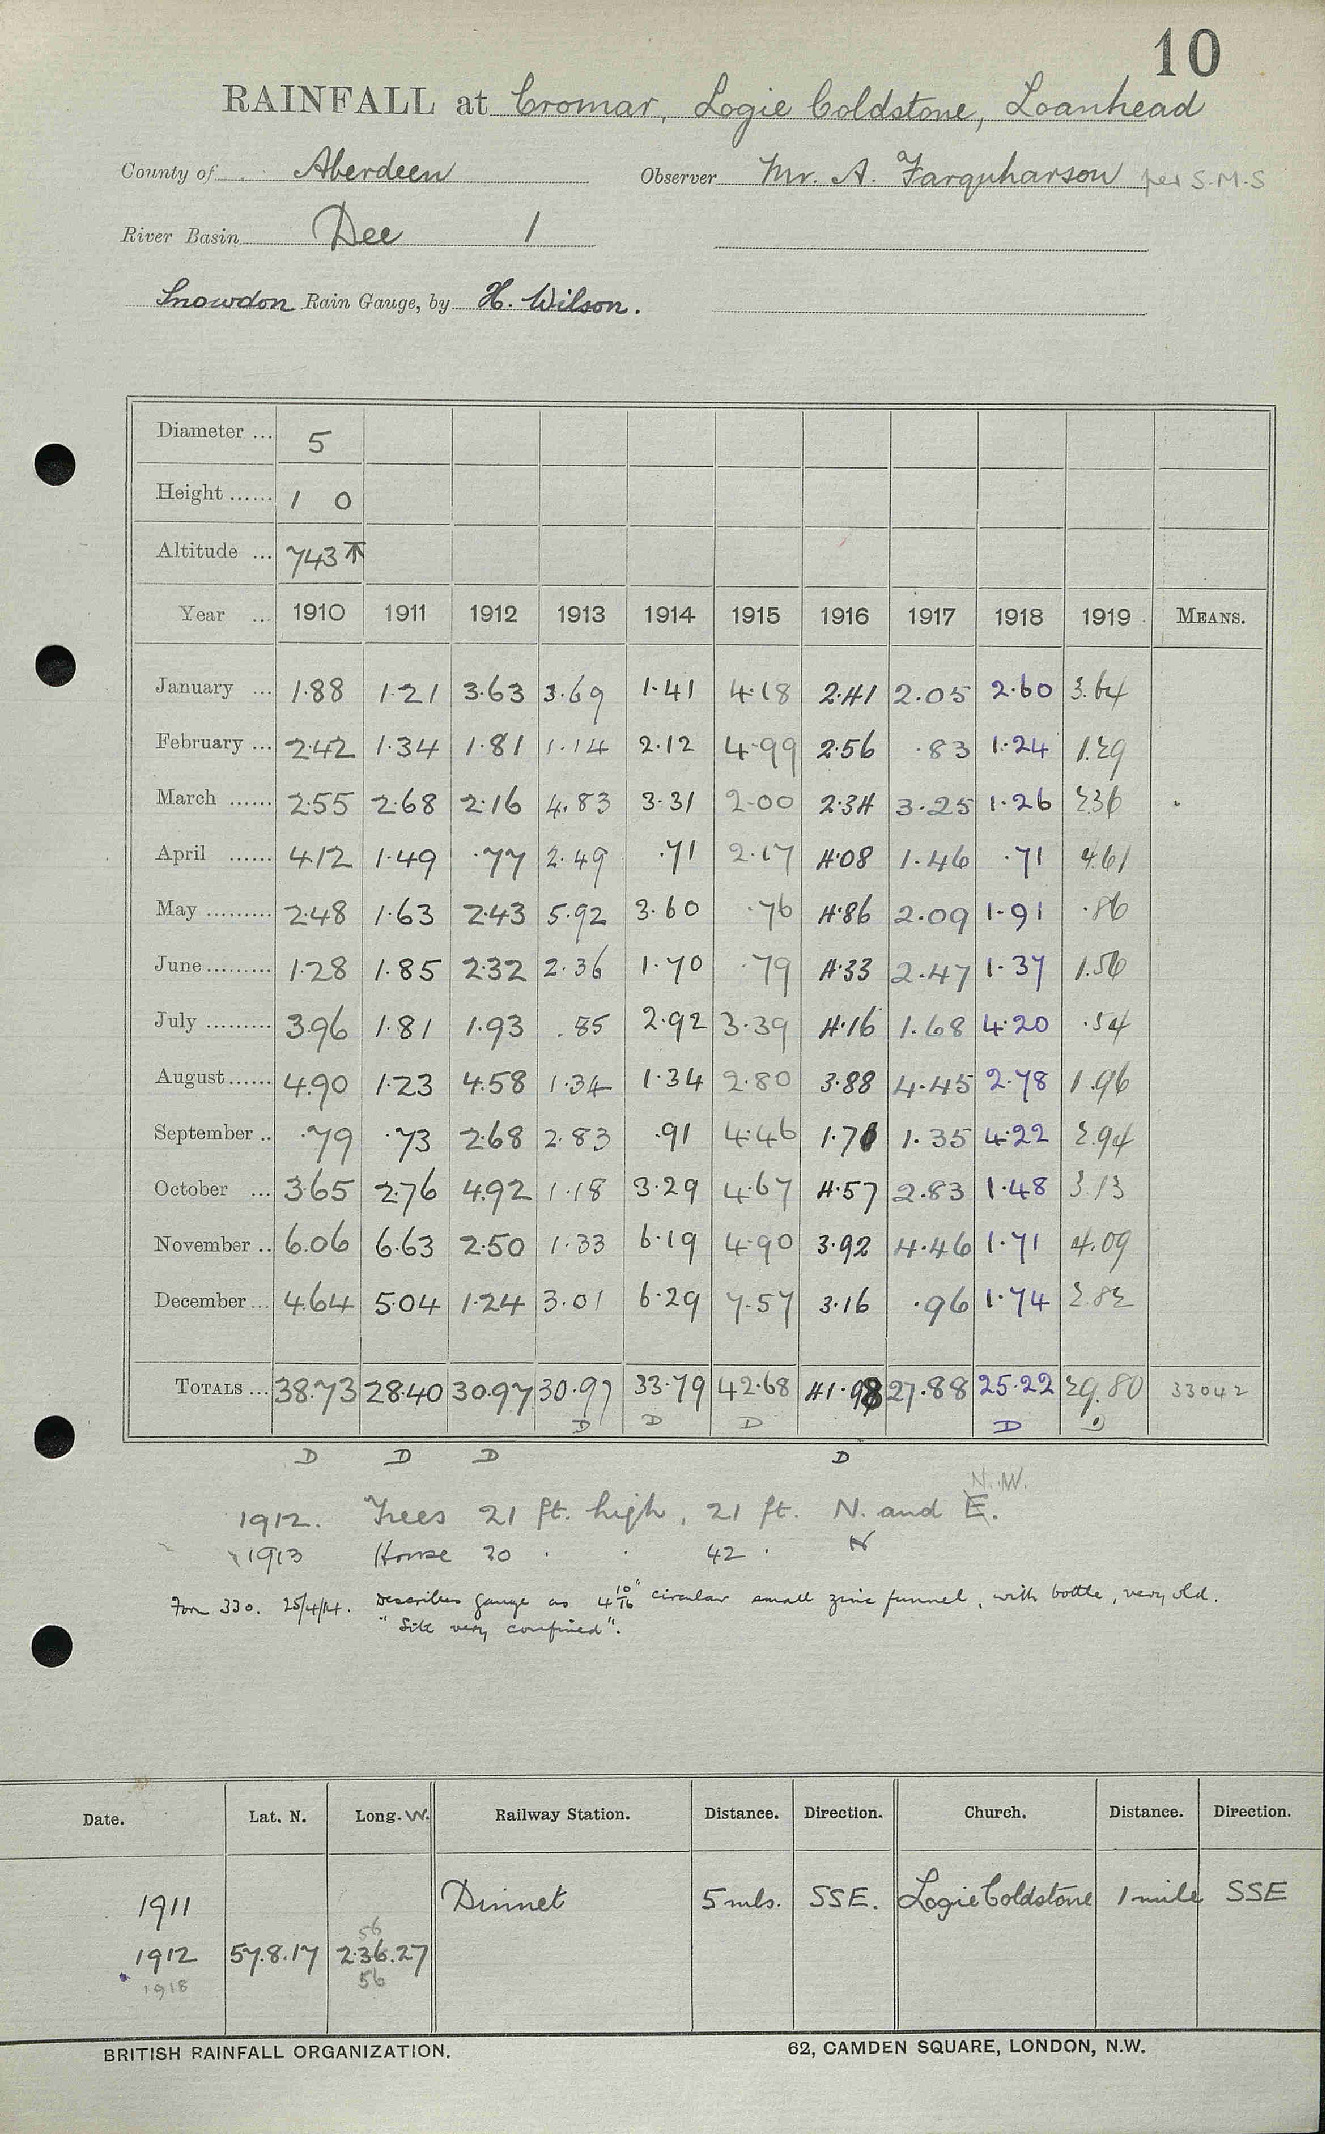 10
RAINFALL at Cromar, Logie Coldstone, Loanhead
County of Aberdeen Observer Mr. A. Farquharson per S.M.S
River Basin Dee 1
Snowdon Rain Gauge, by H. Wilson.
Diameter ... 5
Height ...... 1 0
Altitude ... 743
Year ... 1910 1911 1912 1913 1914 1915 1916 1917 1918 1919 MEANS.
January ... 1.88 1.21 3.63 3.69 1.41 4.18 2.41 2.05 2.60 3.64
February ... 2.42 1.34 1.81 1.14 2.12 4.99 2.56 .83 1.24 1.29
March ...... 2.55 2.68 2.16 4.83 3.31 2.00 2.34 3.25 1.26 2.36
April ...... 4.12 1.49 .77 2.49 .71 2.17 4.08 1.46 .71 4.61
May ......... 2.48 1.63 2.43 5.92 3.60 .76 4.86 2.09 1.91 .86
June ......... 1.28 1.85 2.32 2.36 1.70 .79 4.33 2.47 1.37 1.56
July ......... 3.96 1.81 1.93 .85 2.92 3.39 4.16 1.68 4.20 .54
August ...... 4.90 1.23 4.58 1.34 1.34 2.80 3.88 4.45 2.78 1.96
September .. .79 .73 2.68 2.83 .91 4.46 1.71 1.35 4.22 2.94
October ... 3.65 2.76 4.92 1.18 3.29 4.67 4.57 2.83 1.48 3.13
November .. 6.06 6.63 2.50 1.33 6.19 4.90 3.92 4.46 1.71 4.09
December ... 4.64 5.04 1.24 3.01 6.29 7.57 3.16 .96 1.74 2.82
TOTALS ... 38.73 28.40 30.97 30.97 33.79 42.68 41.98 27.88 25.22 29.80 33042
D D D D D
D D D D
N.W.
1912. Trees 21 ft. high, 21 ft. N. and E.
1913 House 30 . . 42 . N
Form 330. 25/4/14. Describes gauge as 4 10/16" circular small zinc funnel, with bottle, very old.
"Site very confined".
Date. Lat. N. Long. W. Railway Station. Distance. Direction. Church. Distance. Direction.
1911 Dinnet 5 mls. SSE. Logie Coldstone 1 mile SSE
56
1912 57.8.17 2.36.27
1918 56
BRITISH RAINFALL ORGANIZATION. 62, CAMDEN SQUARE, LONDON, N.W.